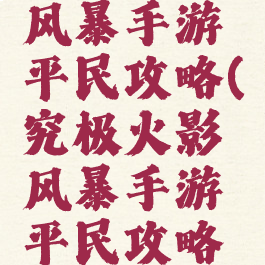 风暴手游
平民攻略(
究极火影
风暴手游
平民攻略